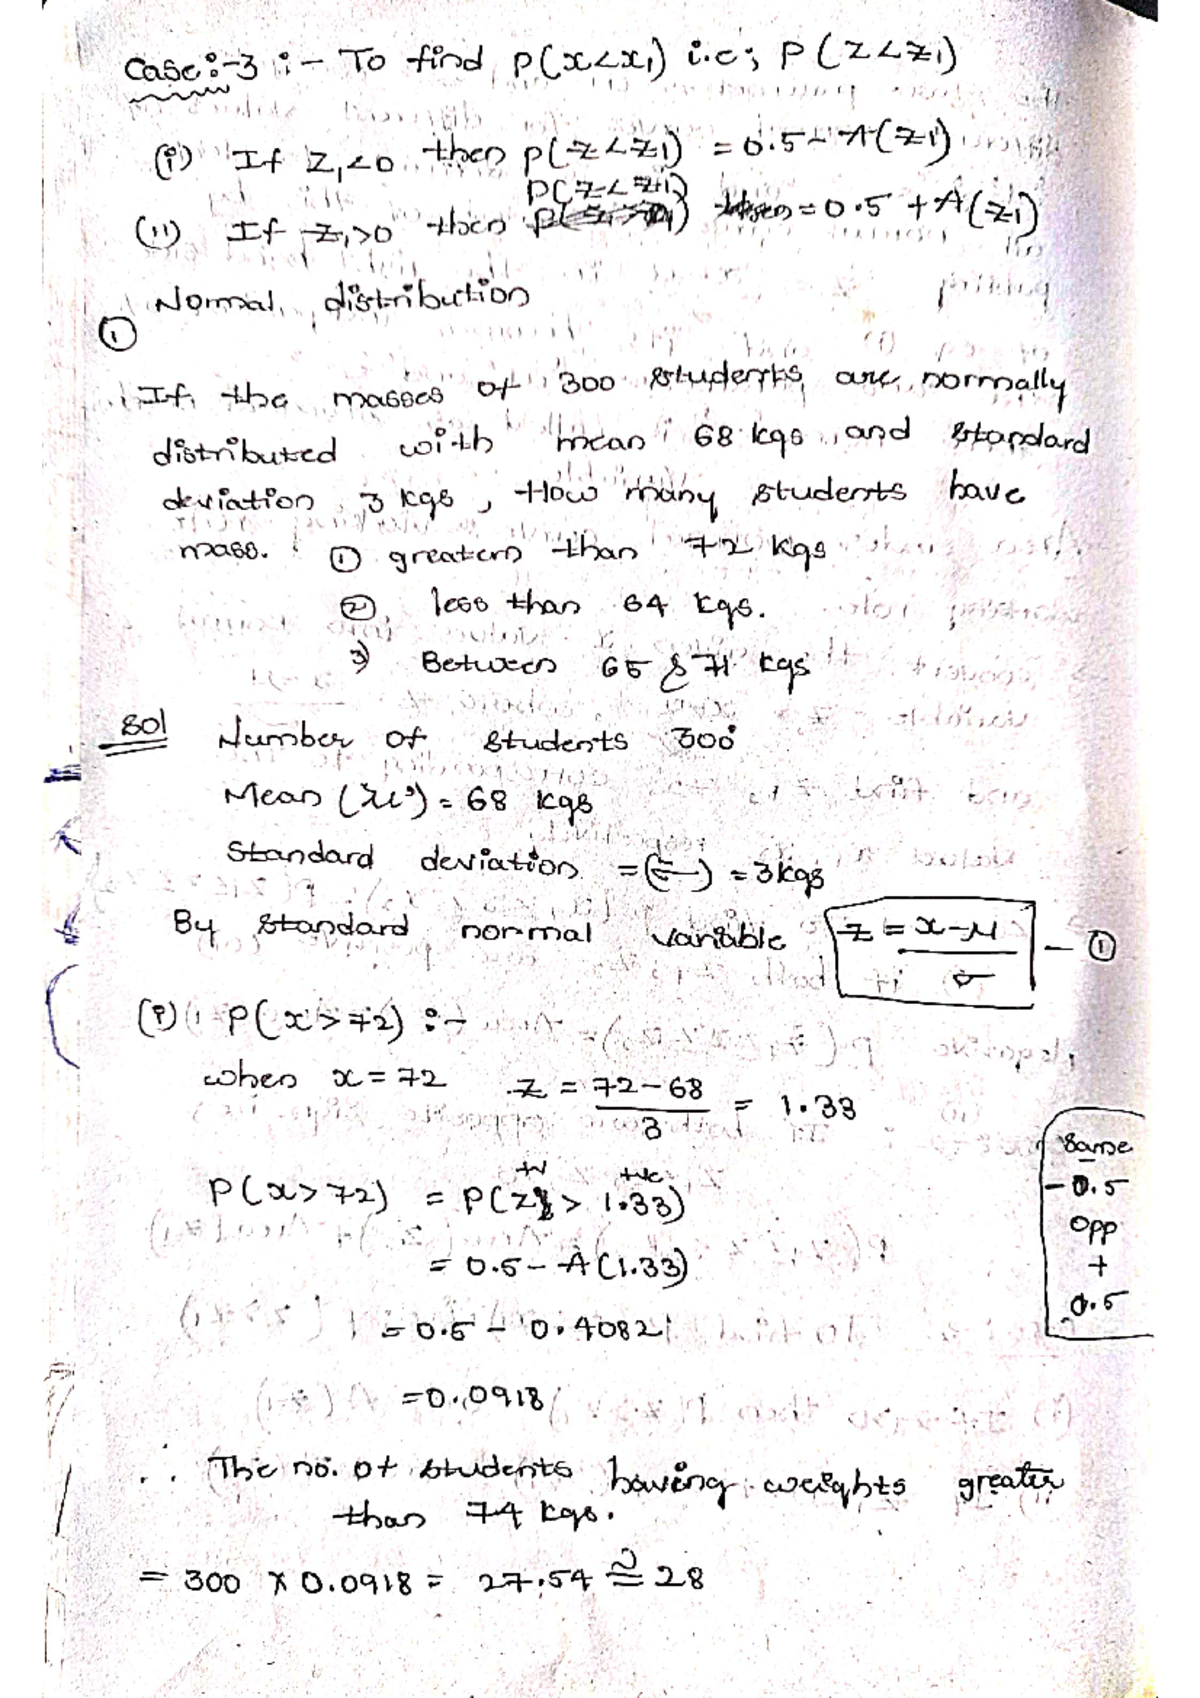 Case:-3 :- To find P(x<x₁) i.e; P(z<z₁)
(i) If z₁<0 then P(z<z₁) = 0.5 - A(z₁)
P(z<z₁)
(ii) If z₁>0 then = 0.5 + A(z₁)
Normal distribution
①
If the masses of 300 students are normally
distributed with mean 68 kgs and standard
deviation 3 kgs, How many students have
mass. ① greater than 72 kgs
② less than 64 kgs.
3) Between 65 & 71 kgs
Sol Number of students 300
Mean (μ) = 68 kgs
Standard deviation = (σ) = 3kgs
By standard normal variable z = x-μ/σ - ①
(i) P(x>72) :-
when x = 72 z = 72-68/3 = 1.33
+ve +ve
P(x>72) = P(z > 1.33)
= 0.5 - A(1.33)
= 0.5 - 0.4082
= 0.0918
Same
-0.5
opp
+
0.5
∴ The no. of students having weights greater
than 74 kgs.
= 300 x 0.0918 = 27.54 ≅ 28